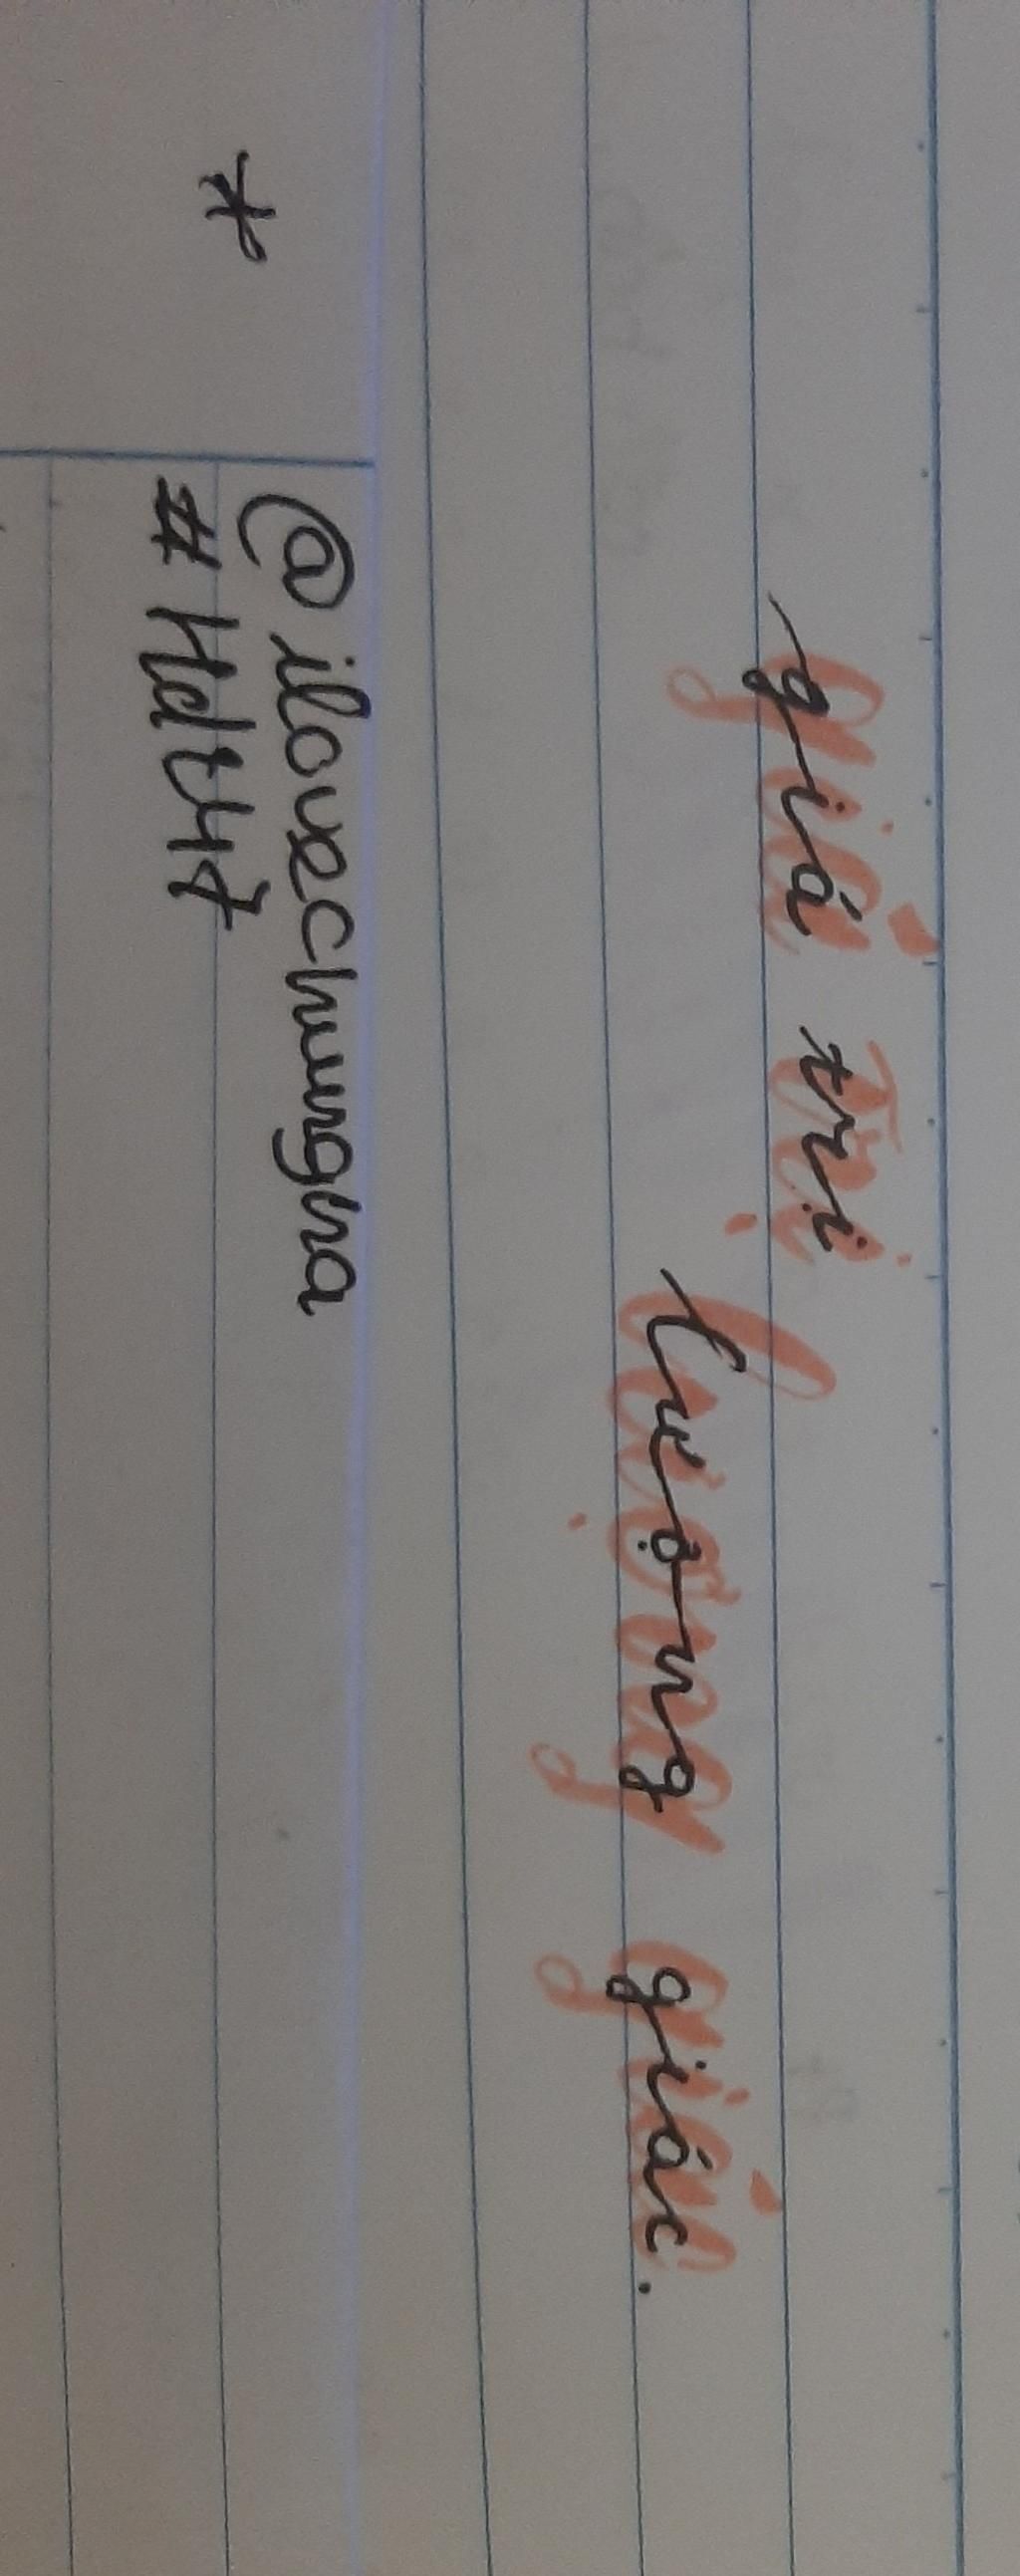 giá trị
lượng giác.
@ilovechungcra
*
#Hdt47